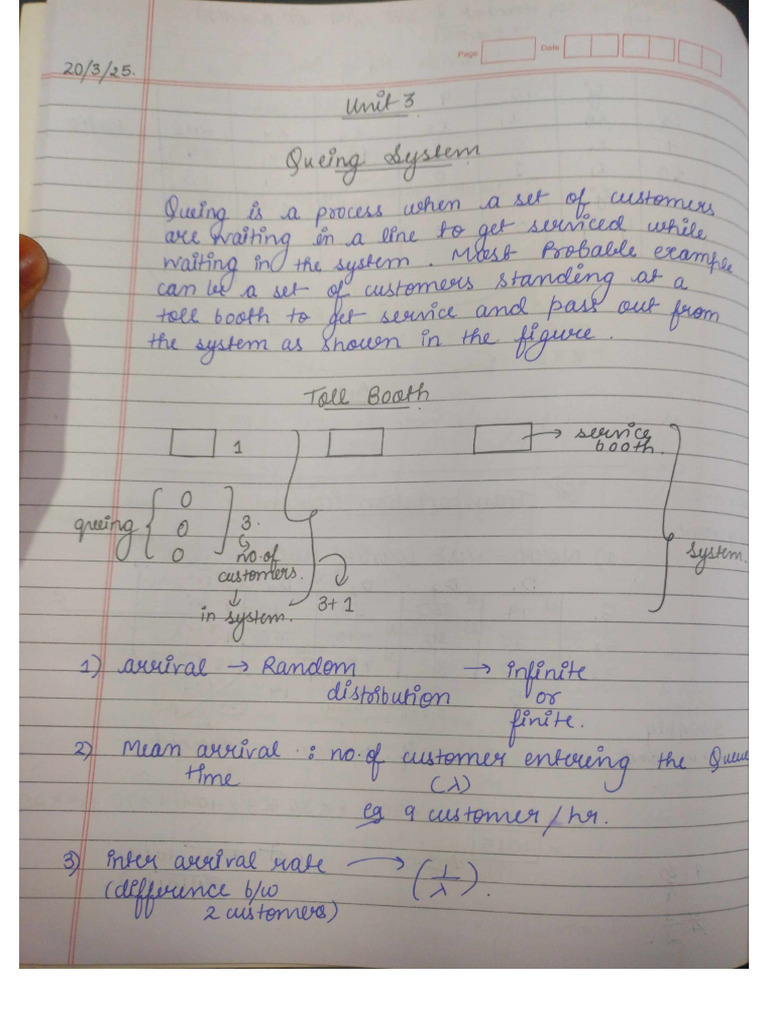 Page Date
20/3/25.
Unit 3
Queing System
Queing is a process when a set of customers
are waiting in a line to get serviced while
waiting in the system. Most Probable example
can be a set of customers standing at a
toll booth to get service and pass out from
the system as shown in the figure.
Toll Booth
1
→ service
booth.
queing { 0 0 0 ] 3.
no. of
customers.
↓
in system.
3+1
System.
1) arrival → Random → infinite
distribution or
finite.
2) Mean arrival : no. of customer entering the Queue
time (λ)
eg 9 customer/hr.
3) inter arrival rate → (1/λ).
(difference b/w
2 customers)